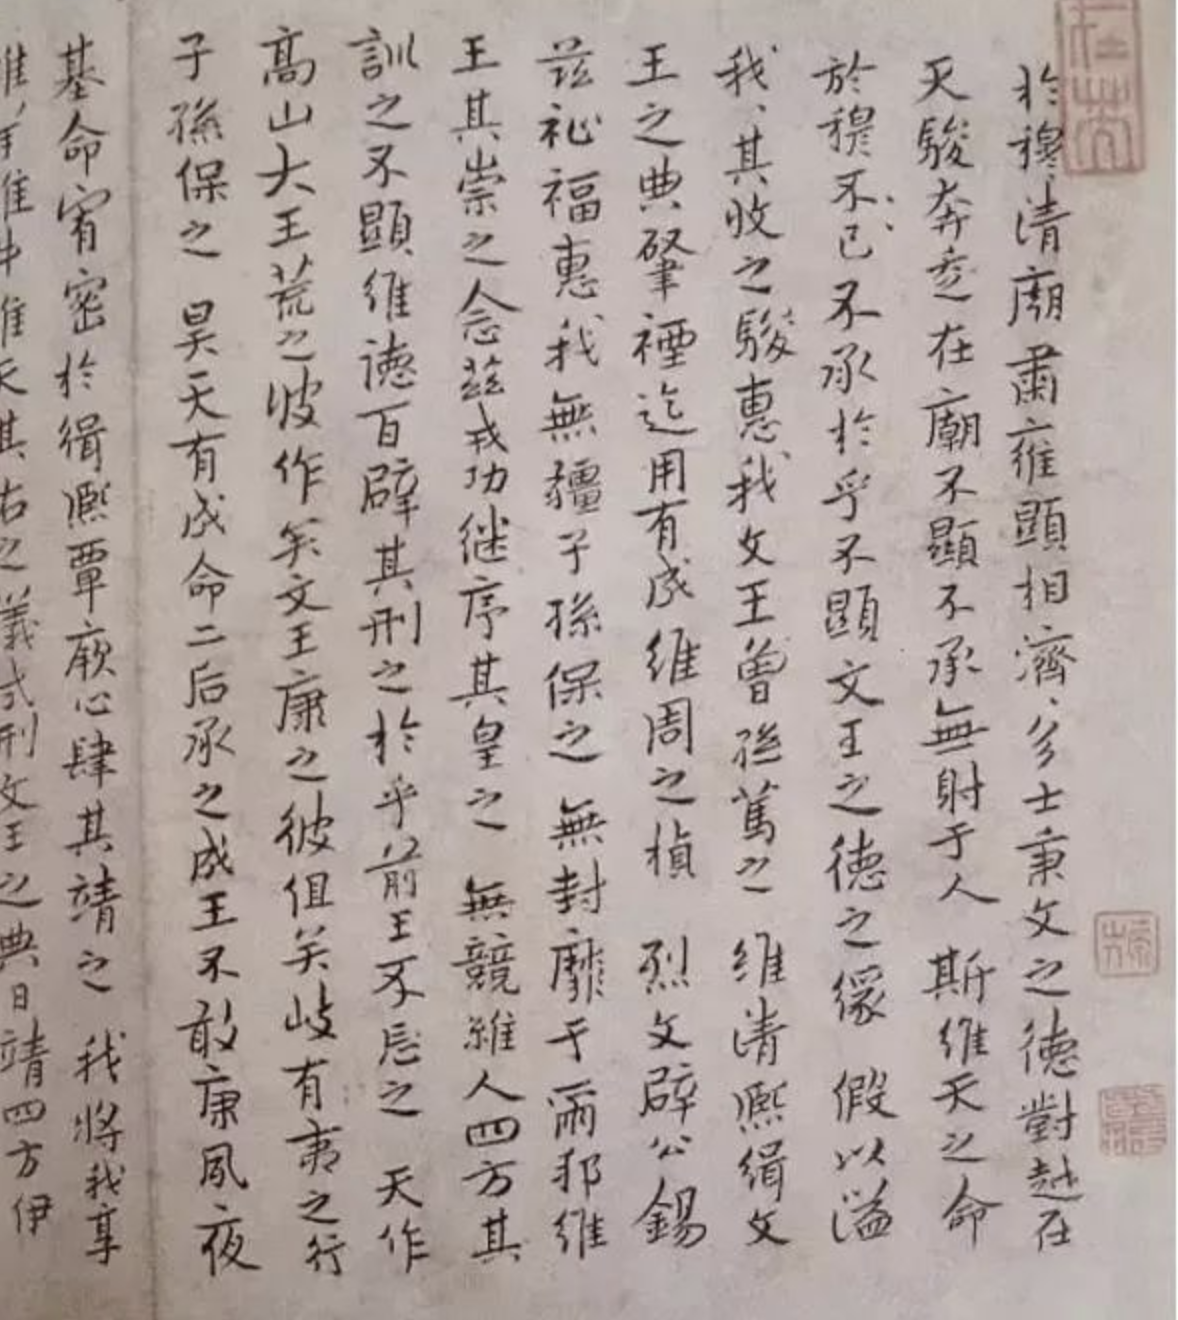 於穆清廟肅雍顯相濟、多士秉文之德對越在
天駿奔走在廟不顯不承無射于人　斯維天之命
於穆不已不承於乎不顯文王之德之　假以溢
我、其收之駿惠我文王曾孫篤之　維清熙緝文
王之典肇禋迄用有成維周之楨　烈文辟公錫
茲祉福惠我無疆子孫保之　無封靡于爾邦維
王其崇之念茲戎功繼序其皇之　無競維人四方其
訓之不顯維德百辟其刑之於乎前王不忘之　天作
高山大王荒之彼作矣文王康之彼徂矣岐有夷之行
子孫保之　昊天有成命二后承之成王不敢康夙夜
基命宥密於緝熙單厥心肆其靖之　我將我享
維羊維牛維天其右之儀式刑文王之典日靖四方伊